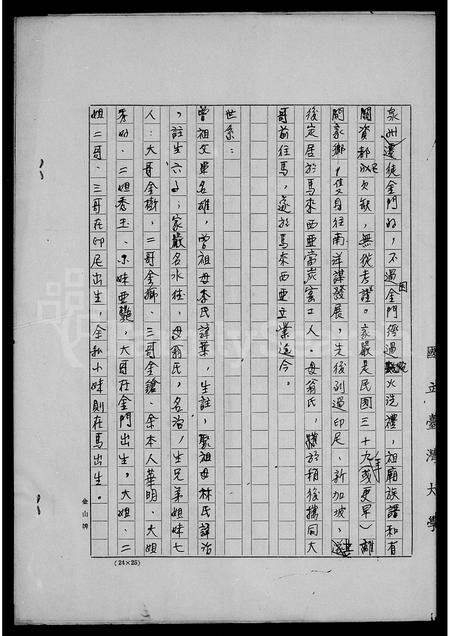 泉州遷徙金門的，不過因金門經過戰火洗禮，祖廟族譜和有
關資都已欠缺，無從考證。家嚴是民國三十九年（或更早）離
開家鄉，隻身往南洋謀發展，先後到過印尼、新加坡，
後定居於馬來西亞當炭窯工人。母翁氏，於稍後攜同大
哥前往馬，遂於馬來西亞立業迄今。
世系：
曾祖父單名雄，曾祖母李氏諱葉，生註，祖母林氏諱治
，註生六子；家嚴名水往，母翁氏，名治，生兄弟姐妹七
人：大哥金樹、二哥金獅、三哥金鎗、余本人華明、大姐
秀如、二姐秀玉、小妹亞艷，大哥在金門出生，大姐、二
姐二哥、三哥在印尼出生，余和小妹則在馬出生。
國立臺灣大學
金山牌
(24×25)